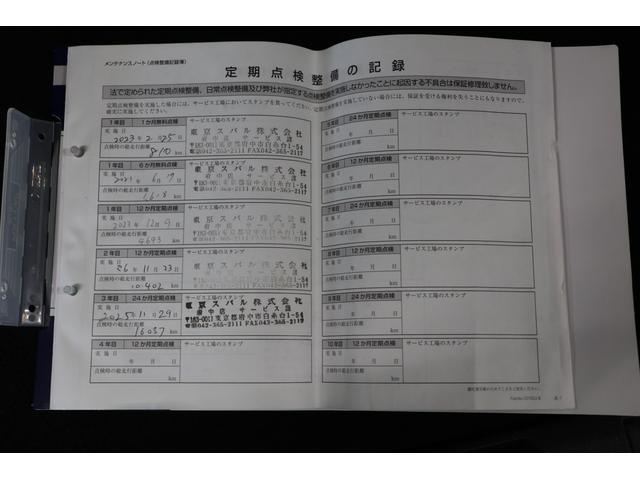 メンテナンスノート(点検整備記録簿)
定期点検整備の記録
法で定められた定期点検整備、日常点検整備及び弊社が指定する点検整備を実施しなかったことに起因する不具合は保証修理致しません。
1年目 1か月無料点検 サービス工場のスタンプ
実施日
2023年2月25日
点検時の総走行距離
810 km
東京スバル株式会社
府中店 サービス課
〒183-0011東京都府中市白糸台1-54
☎042-365-2111 FAX042-365-2117
1年目 6か月無料点検 サービス工場のスタンプ
実施日
6月19日
点検時の総走行距離
1618 km
東京スバル株式会社
府中店 サービス課
〒183-0011東京都府中市白糸台1-54
☎042-365-2111 FAX042-365-2117
1年目 12か月定期点検 サービス工場のスタンプ
実施日
2023年12月9日
点検時の総走行距離
4693 km
東京スバル株式会社
府中店 サービス課
〒183-0011東京都府中市白糸台1-54
☎042-365-2111 FAX042-365-2117
2年目 12か月定期点検 サービス工場のスタンプ
実施日
11月23日
点検時の総走行距離
10,402 km
東京スバル株式会社
府中店 サービス課
〒183-0011東京都府中市白糸台1-54
☎042-365-2111 FAX042-365-2117
3年目 24か月定期点検 サービス工場のスタンプ
実施日
2025年11月29日
点検時の総走行距離
16037 km
東京スバル株式会社
府中店 サービス課
〒183-0011東京都府中市白糸台1-54
☎042-365-2111 FAX042-365-2117
4年目 12か月定期点検 サービス工場のスタンプ
実施日
年 月 日
点検時の総走行距離
km
5年目 24か月定期点検 サービス工場のスタンプ
実施日
年 月 日
点検時の総走行距離
km
6年目 12か月定期点検 サービス工場のスタンプ
実施日
年 月 日
点検時の総走行距離
km
7年目 24か月定期点検 サービス工場のスタンプ
実施日
年 月 日
点検時の総走行距離
km
8年目 12か月定期点検 サービス工場のスタンプ
実施日
年 月 日
点検時の総走行距離
km
9年目 24か月定期点検 サービス工場のスタンプ
実施日
年 月 日
点検時の総走行距離
km
10年目 12か月定期点検 サービス工場のスタンプ
実施日
年 月 日
点検時の総走行距離
km